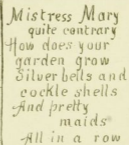 Mistress Mary
quite contrary
How does your
garden grow
Silver bells and
cockle shells
And pretty
maids
All in a row